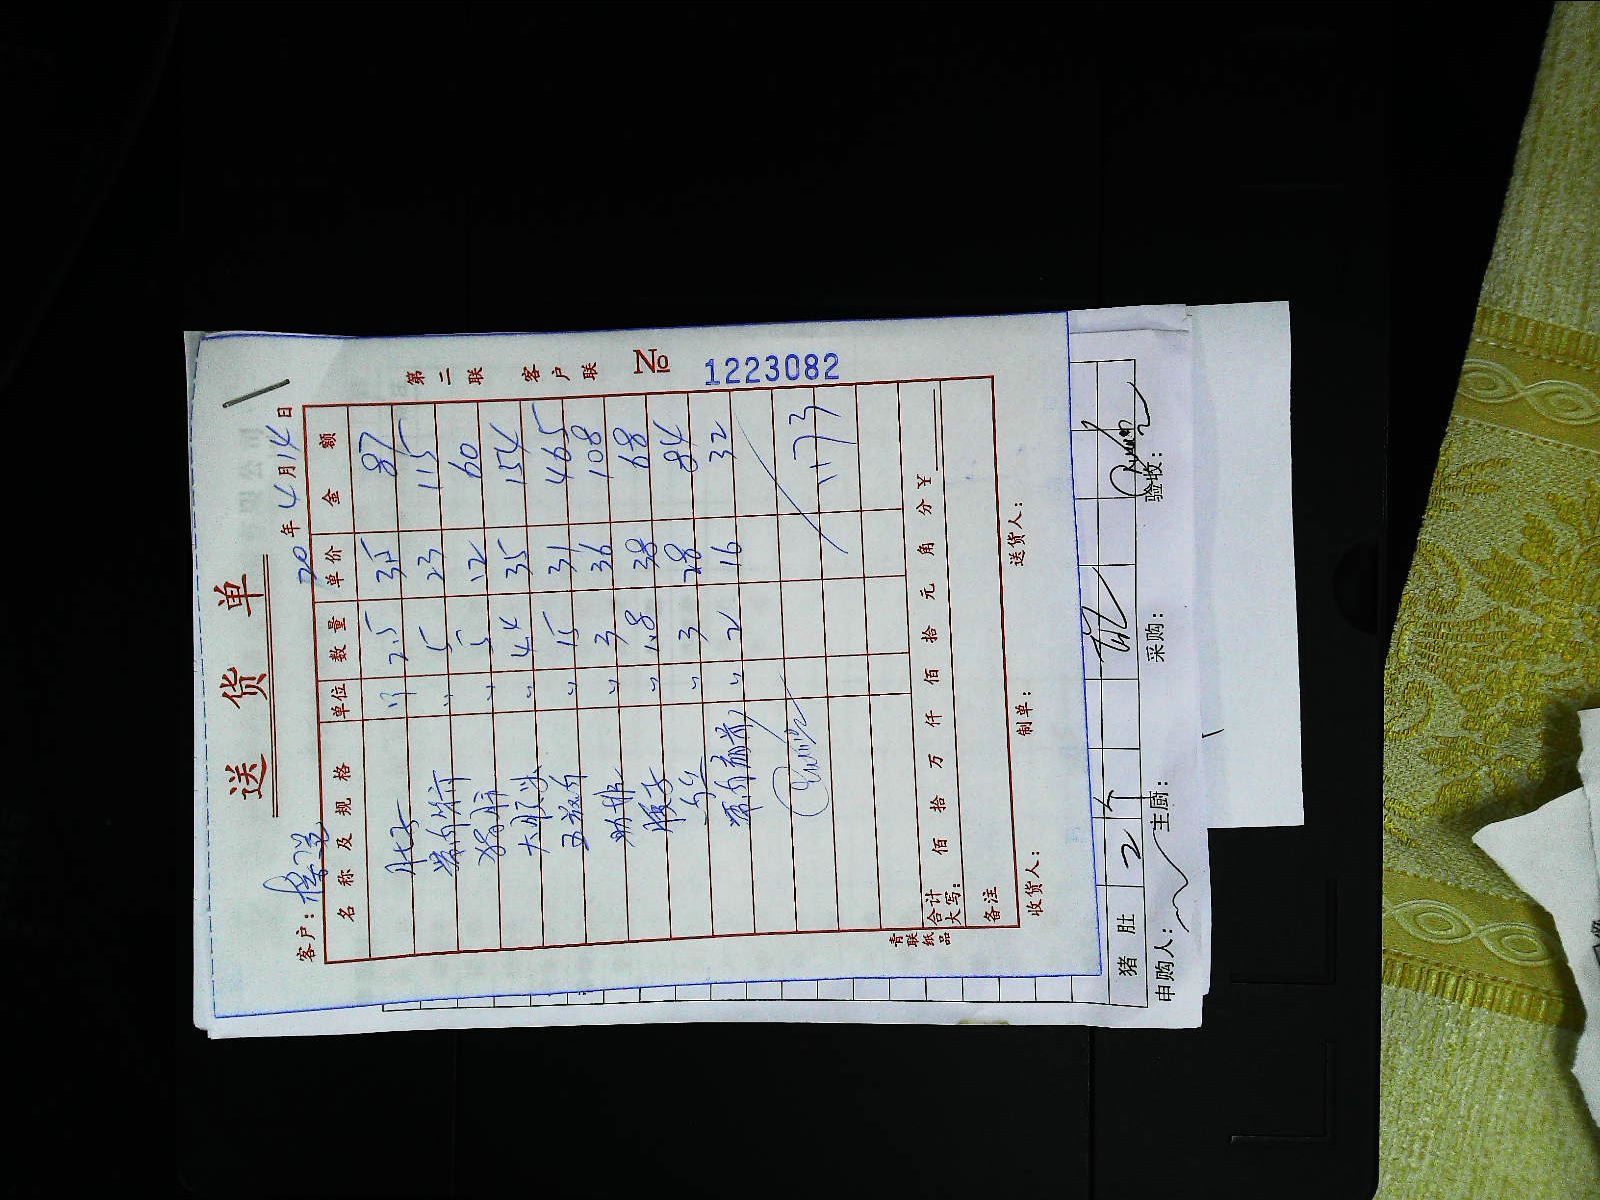 送货单
客户:
20年4月14日
第二联 客户联 No 1223082
名称及规格 单位 数量 单价 金额
肚子 斤 2.5 35 87
5 23 115
5 12 60
4.4 35 154
五花肉 〃 15 31 465
肋排 〃 3 36 108
〃 1.8 38 68
〃 3 28 84
〃 2 16 32
1173
合计大写: 佰 拾 万 仟 佰 拾 元 角 分 ¥
备注
收货人: 制单: 送货人:
青联纸品
猪肚 2个
申购人: 主厨: 采购: 验收: